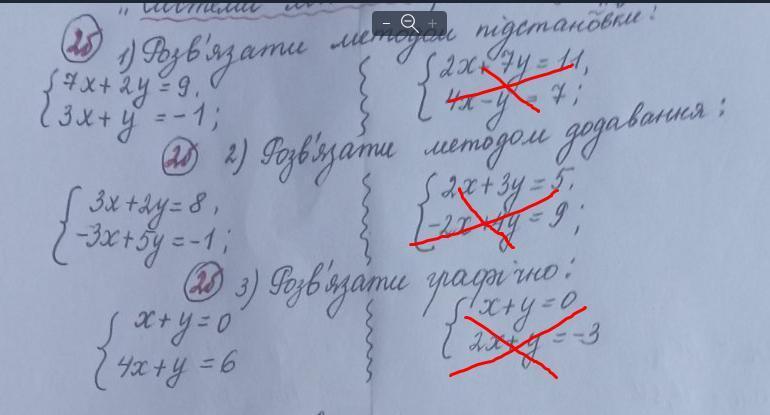 "Системи
2б 1) Розв'язати методом підстановки:
{ 7x + 2y = 9, { 2x + 7y = 11,
3x + y = -1; 4x - y = 7;
2б 2) Розв'язати методом додавання:
{ 3x + 2y = 8, { 2x + 3y = 5,
-3x + 5y = -1; -2x + 4y = 9;
2б 3) Розв'язати графічно:
{ x + y = 0 { x + y = 0
4x + y = 6 2x + y = -3